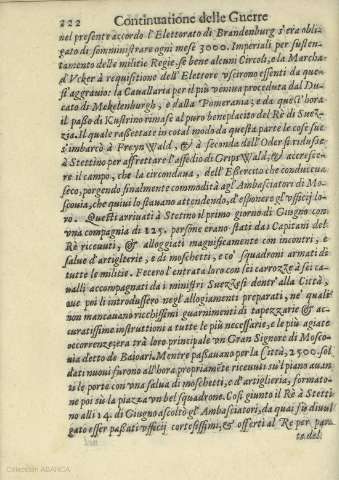 222 Continuatione delle Guerre
nel presente accordo l'Elettorato di Brandenburg s'era obli-
gato di somministrare ogni mese 3000. Imperiali per susten-
tamento delle militie Regie, se bene alcuni Circoli, e la Marcha
d'Vcker à requisitione dell'Elettore vscirono essenti da que-
st'aggrauio: la Cauallaria per il più veniua proceduta dal Du-
cato di Mekelenburgh, e dalla Pomerania; e da quest'hora
il passo di Kustrino rimase al puro beneplacito del Rè di Suez-
zia. Il quale rassettate in cotal modo da questa parte le cose sue
s'imbarcò à FreynVvald, & à seconda dell'Oder si ridusse
à Stettino per affrettare l'assedio di GripsVvald, & accresce-
re il campo, che la circondaua, dell'Essercito che conduceua
seco, porgendo finalmente commodità agl'Ambasciatori di Mo-
scouia, che quiui lo stauano attendendo, d'esponere gl'vfficij lo-
ro. Questi arriuati à Stetino il primo giorno di Giugno con
vna compagnia di 125. persone erano stati da i Capitani del
Rè riceuuti, & alloggiati magnificamente con incontri, e
salue d'artiglierie, e di moschetti, e co' squadroni armati di
tutte le militie. Fecero l'entrata loro con sei carrozze à sei ca-
ualli accompagnati da i ministri Suezzesi dentr'alla Città,
que poi li introdussero negl'allogiamenti preparati, ne' quali
non mancauano ricchissimi guarnimenti di tapezzarie & ac-
curatissime instruttioni a tutte le più necessarie, e le più agiate
occorrenze; era trà loro principale vn Gran Signore di Mosco-
uia detto de Baioari. Mentre passauano per la Città, 2500. sol
dati nuoui furono all'hora propriamẽte riceuuti sul piano auan
ti le porte con vna salua di moschetti, e d'artiglieria, formato-
ne poi sù la piazza vn bel squadrone. Così giunto il Rè à Stetti
no alli 14. di Giugno ascoltò gl'Ambasciatori, da quai si è diuul
gato esser passati vfficij cortesissimi, & offerti al Rè per par-
te del.
Colección ABANCA